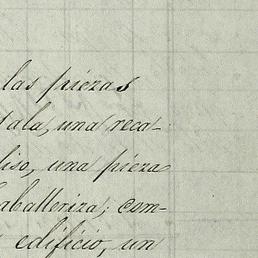 las piezas
tala, una reca-
liso, una pieza
caballeriza; com-
edificio, un